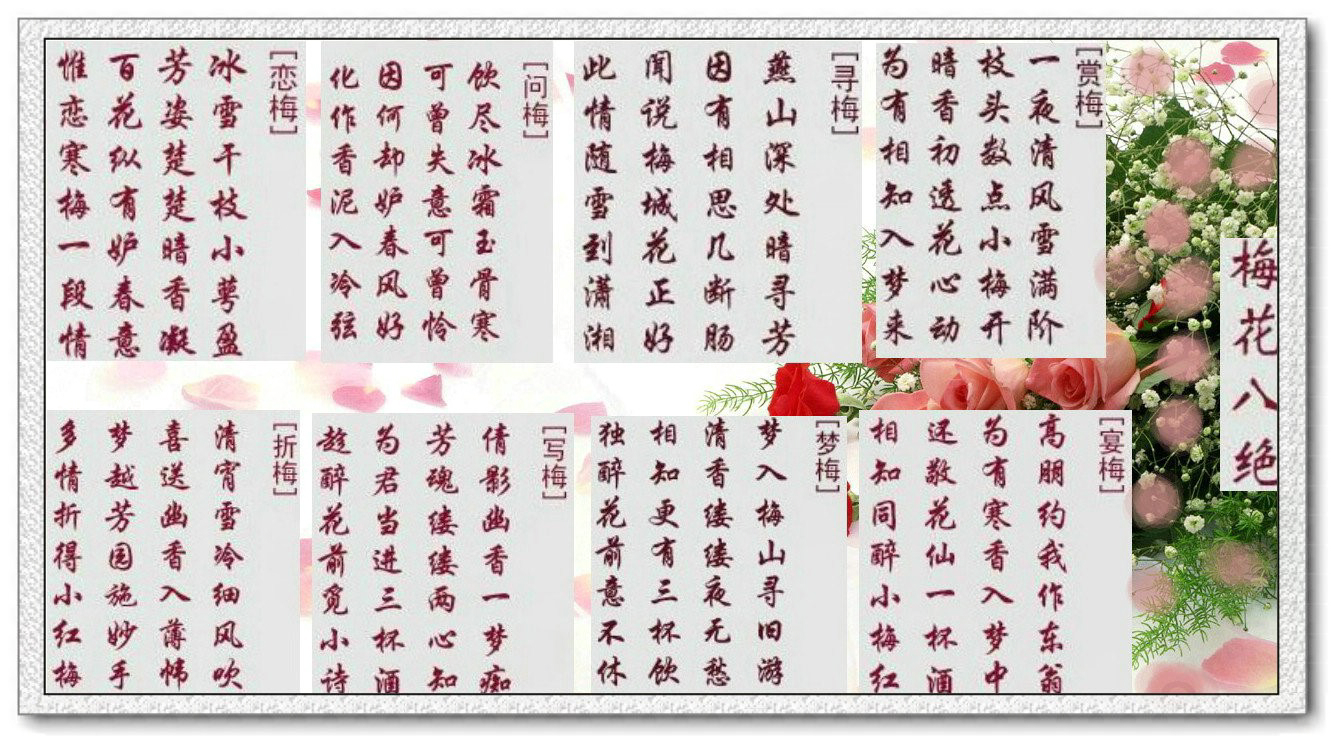 梅花八绝
[赏梅]
一夜清风雪满阶
枝头数点小梅开
暗香初透花心动
为有相知入梦来
[寻梅]
燕山深处暗寻芳
因有相思几断肠
闻说梅城花正好
此情随雪到潇湘
[问梅]
饮尽冰霜玉骨寒
可曾失意可曾怜
因何却妒春风好
化作香泥入冷弦
[恋梅]
冰雪干枝小萼盈
芳姿楚楚暗香凝
百花纵有妒春意
惟恋寒梅一段情
[宴梅]
高朋约我作东翁
为有寒香入梦中
还敬花仙一杯酒
相知同醉小梅红
[梦梅]
梦入梅山寻旧游
清香缕缕夜无愁
相知更有三杯饮
独醉花前意不休
[写梅]
倩影幽香一梦痴
芳魂缕缕两心知
为君当进三杯酒
趁醉花前觅小诗
[折梅]
清宵雪冷细风吹
喜送幽香入薄帏
梦越芳园施妙手
多情折得小红梅